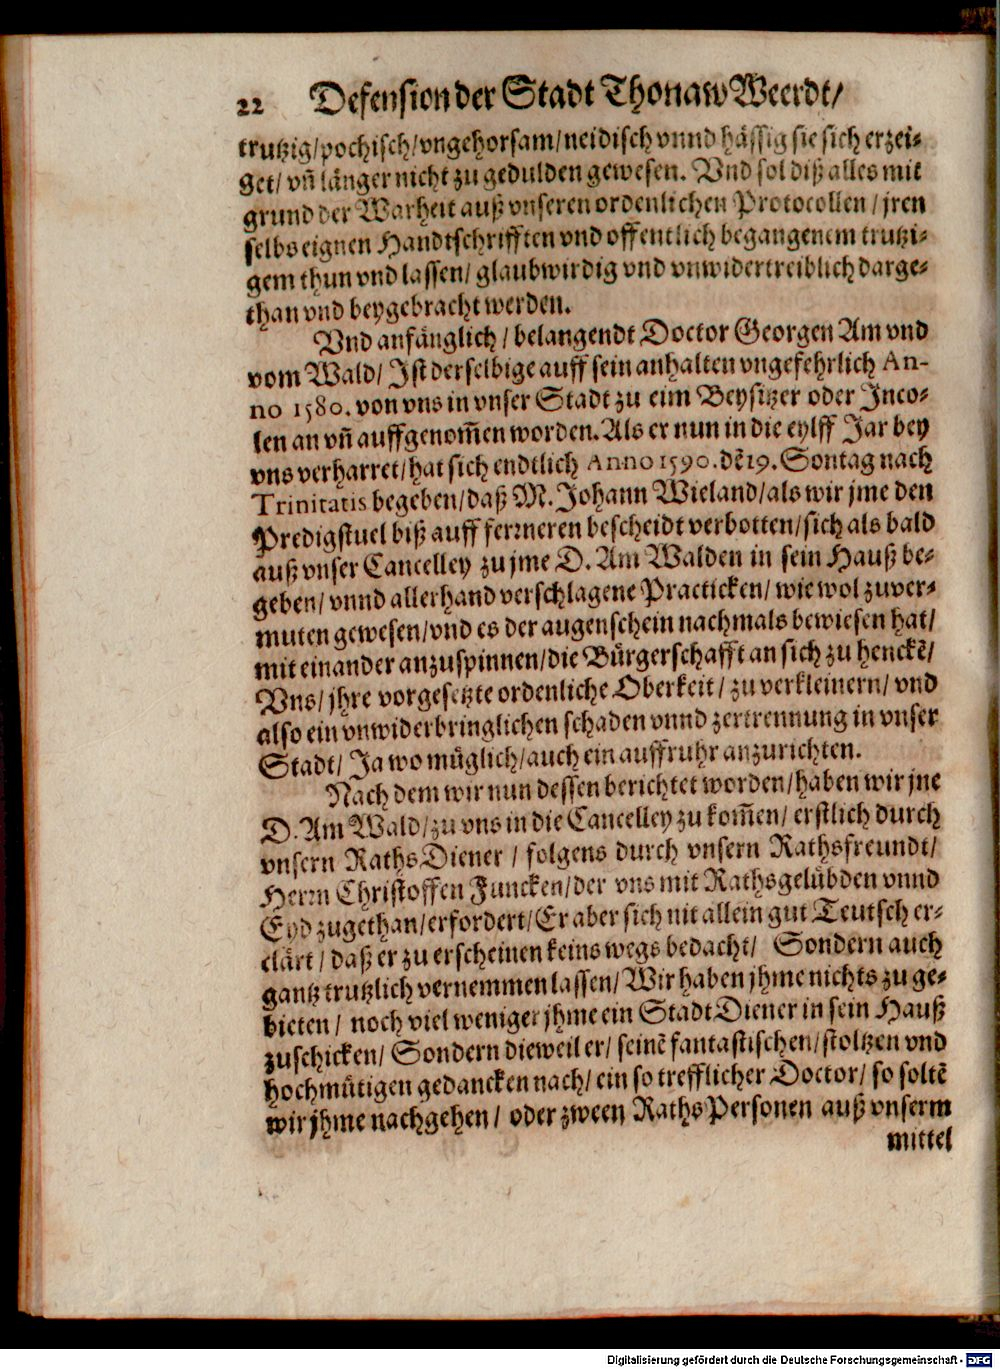 22 Defension der Stadt Thonaw Weerdt/
trutzig/pochisch/vngehorsam/neidisch vnnd hässig sie sich erzei-
get/ vñ länger nicht zu gedulden gewesen. Vnd sol diß alles mit
grund der Warheit auß vnseren ordenlichen Protocollen/ jren
selbs eignen Handtschrifften vnd offentlich begangenem trutzi-
gem thun vnd lassen/ glaubwirdig vnd vnwidertreiblich darge-
than vnd beygebracht werden.
Vnd anfänglich/ belangendt Doctor Georgen Am vnd
vom Wald/ Ist derselbige auff sein anhalten vngefehrlich An-
no 1580. von vns in vnser Stadt zu eim Beysitzer oder Inco-
len an vñ auffgenom̃en worden. Als er nun in die eylff Jar bey
vns verharret/ hat sich endtlich Anno 1590. dẽ 19. Sontag nach
Trinitatis begeben/ daß M. Johann Wieland/ als wir jme den
Predigstuel biß auff fermeren bescheidt verbotten/ sich als bald
auß vnser Cancelley zu jme D. Am Walden in sein Hauß be-
geben/ vnnd allerhand verschlagene Practicken/ wie wol zuver-
muten gewesen/ vnd es der augenschein nachmals bewiesen hat/
mit einander anzuspinnen/ die Bürgerschafft an sich zu henckẽ/
Vns/ jhre vorgesetzte ordenliche Oberkeit/ zu verkleinern/ vnd
also ein vnwiderbringlichen schaden vnnd zertrennung in vnser
Stadt/ Ja wo müglich/ auch ein auffruhr anzurichten.
Nach dem wir nun dessen berichtet worden/ haben wir jne
D. Am Wald/ zu vns in die Cancelley zu kom̃en/ erstlich durch
vnsern Raths Diener/ folgens durch vnsern Rathsfreundt/
Herrn Christoffen Juncken/ der vns mit Rathsgelübden vnnd
Eyd zugethan/ erfordert/ Er aber sich nit allein gut Teutsch er-
clärt/ daß er zu erscheinen keins wegs bedacht/ Sondern auch
gantz trutzlich vernemmen lassen/ Wir haben jhme nichts zu ge-
bieten/ noch viel weniger jhme ein Stadt Diener in sein Hauß
zuschicken/ Sondern dieweil er/ seinẽ fantastischen/ stoltzen vnd
hochmütigen gedancken nach/ ein so trefflicher Doctor/ so soltẽ
wir jhme nachgehen/ oder zween Raths Personen auß vnserm
mittel
Digitalisierung gefördert durch die Deutsche Forschungsgemeinschaft - DFG